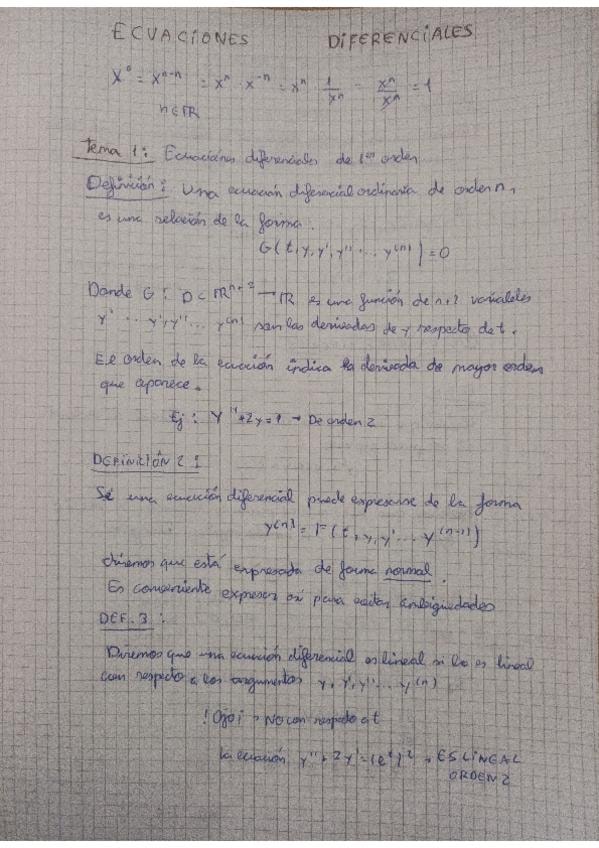 ECUACIONES DIFERENCIALES
X⁰ = Xⁿ⁻ⁿ = xⁿ · x⁻ⁿ = xⁿ · 1/xⁿ = xⁿ/xⁿ = 1
n∈ℝ
Tema 1: Ecuaciones diferenciales de 1er orden
Definición: Una ecuación diferencial ordinaria de orden n,
es una relación de la forma.
G(t, y, y', y'' ... y⁽ⁿ⁾) = 0
Donde G : D ⊂ ℝⁿ⁺² → ℝ es una función de n+2 variables
y' ... y', y'' ... y⁽ⁿ⁾ son las derivadas de y respecto de t.
El orden de la ecuación indica la derivada de mayor orden
que aparece.
Ej: y'' + 2y = 1 → De orden 2
DEFINICIÓN 2:
Si una ecuación diferencial puede expresarse de la forma
y⁽ⁿ⁾ = F(t, y, y' ... y⁽ⁿ⁻¹⁾)
diremos que está expresada de forma normal.
Es conveniente expresar así para evitar ambigüedades
DEF. 3:
Diremos que una ecuación diferencial es lineal si lo es lineal
con respecto a los argumentos y, y', y'' ... y⁽ⁿ⁾
! Ojo ¡ → No con respecto a t
la ecuación y'' + 2y' = (eᵗ)² → ES LINEAL
ORDEN 2